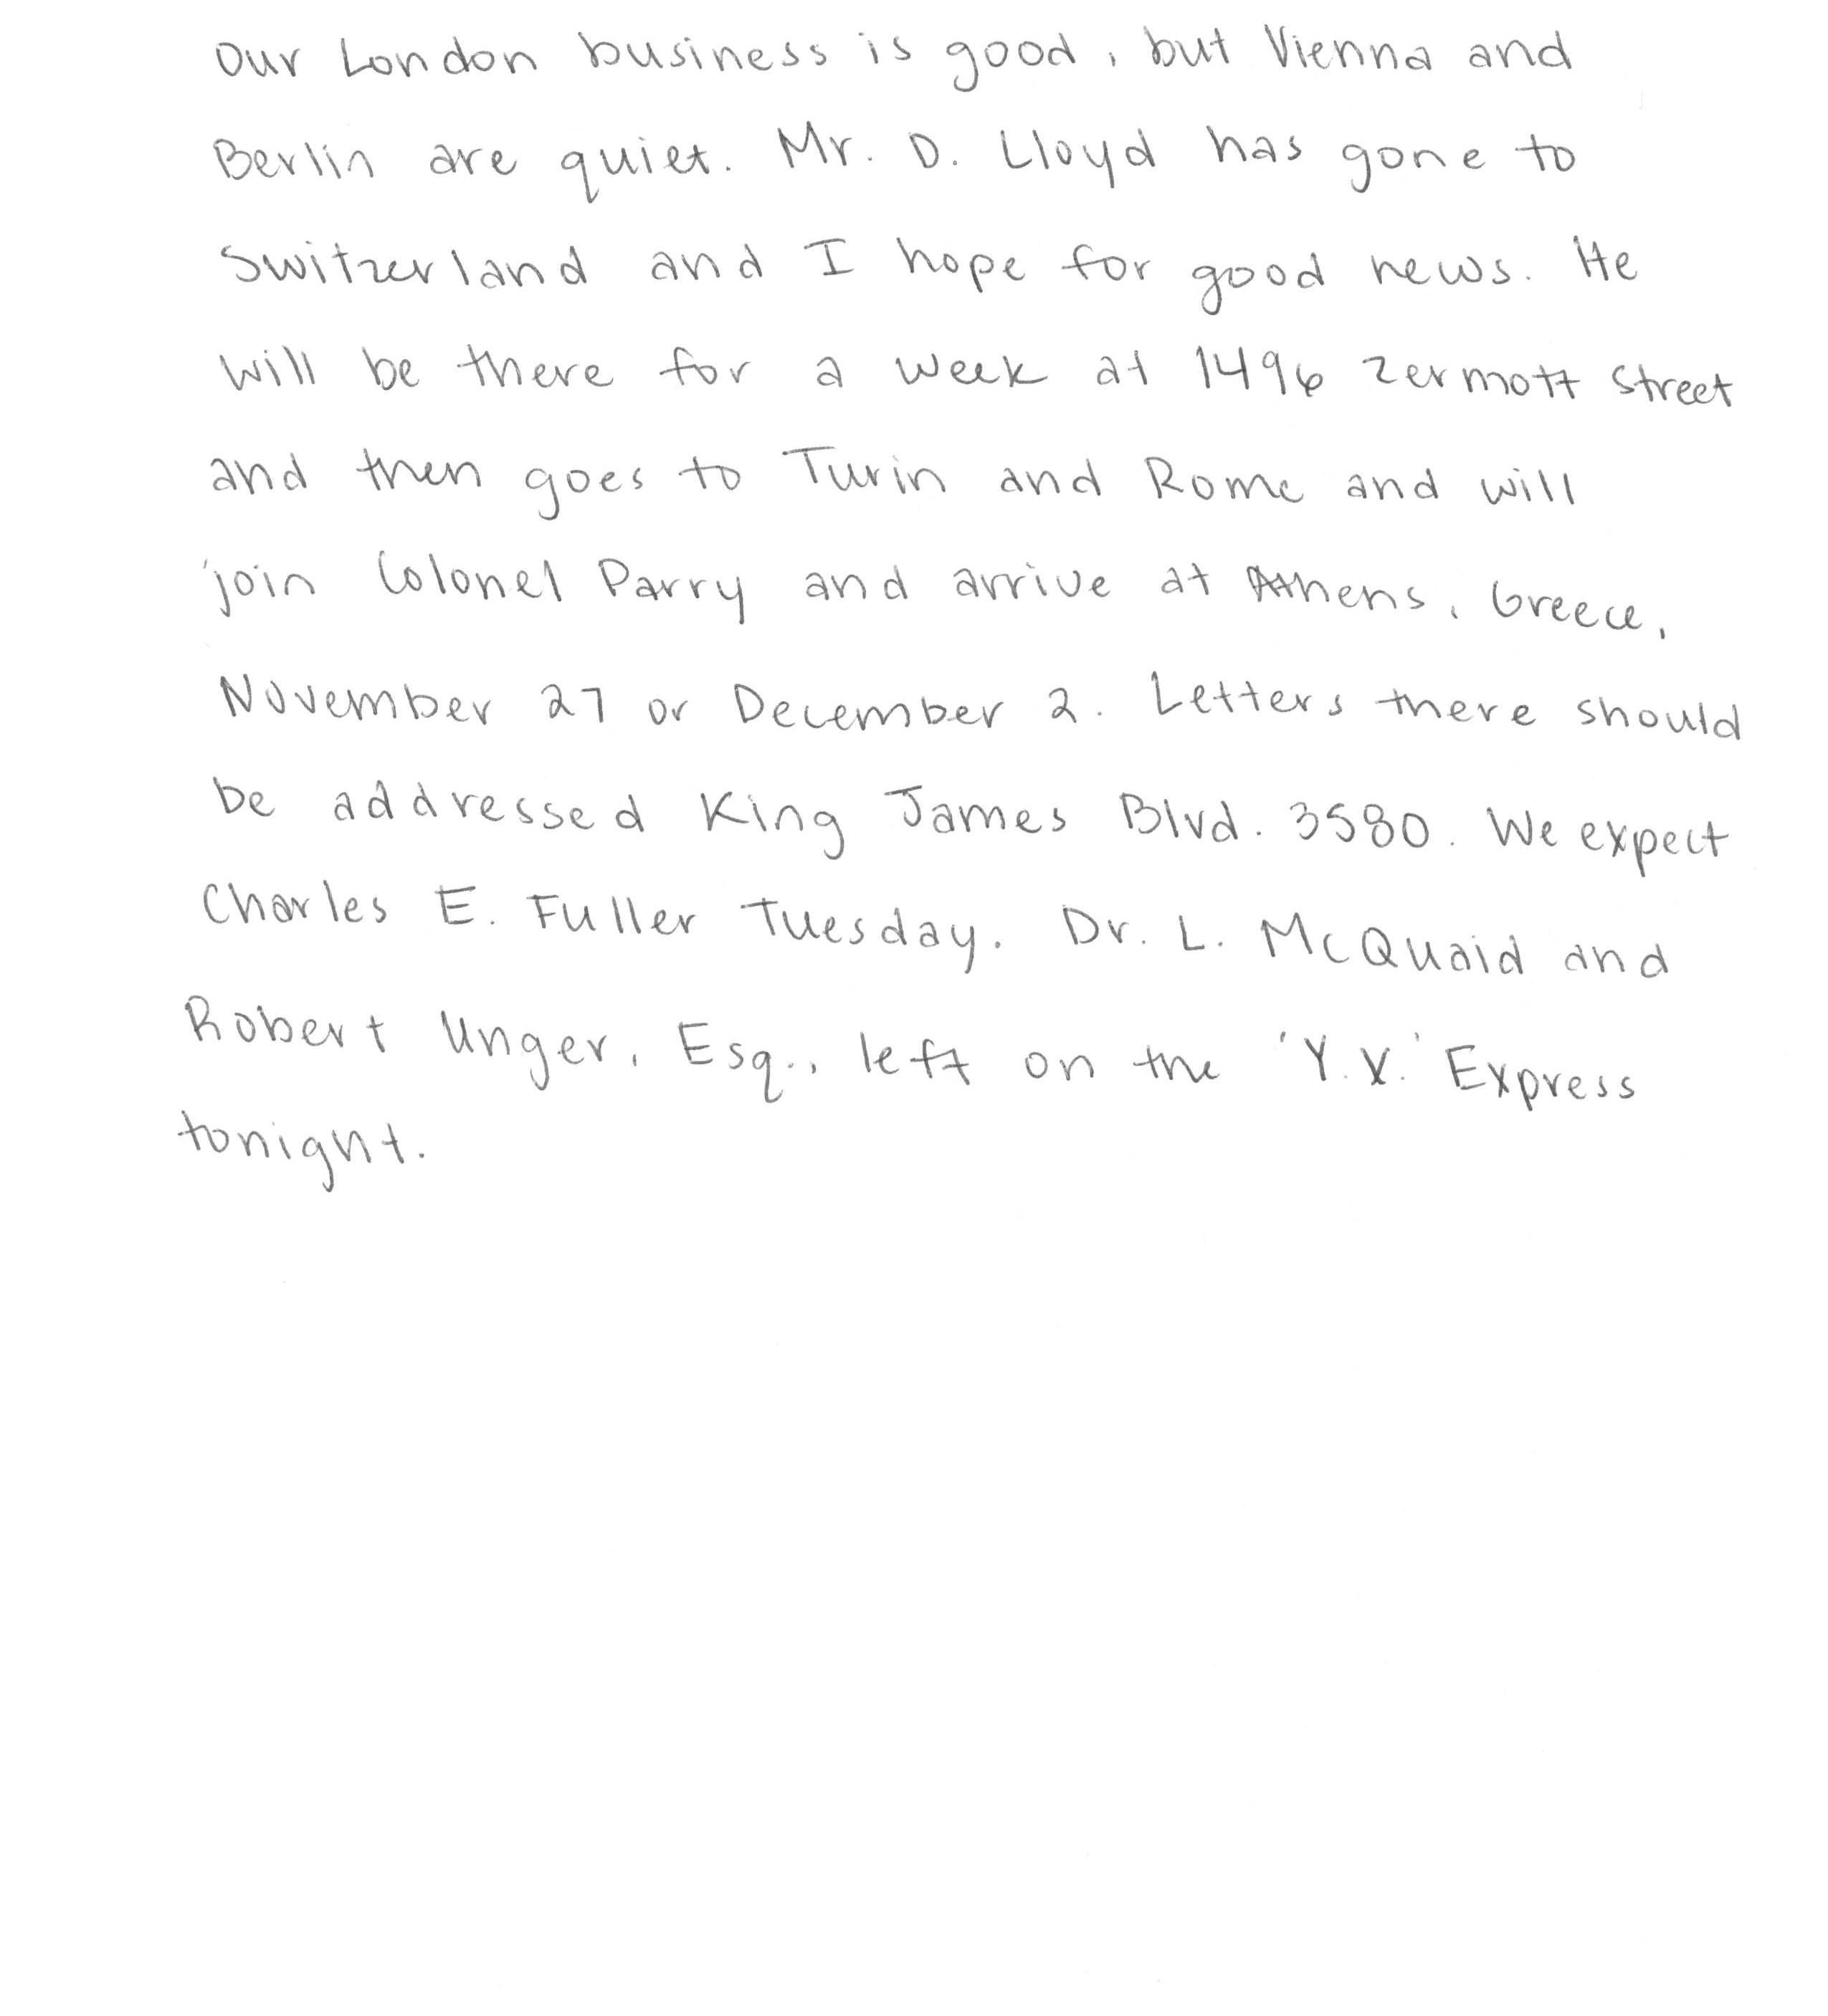 Our London business is good, but Vienna and
Berlin are quiet. Mr. D. Lloyd has gone to
Switzerland and I hope for good news. He
will be there for a week at 1496 Zermott street
and then goes to Turin and Rome and will
join Colonel Parry and arrive at Athens, Greece,
November 27 or December 2. Letters there should
be addressed King James Blvd. 3580. We expect
Charles E. Fuller Tuesday. Dr. L. McQuaid and
Robert Unger, Esq., left on the 'Y.X.' Express
tonight.